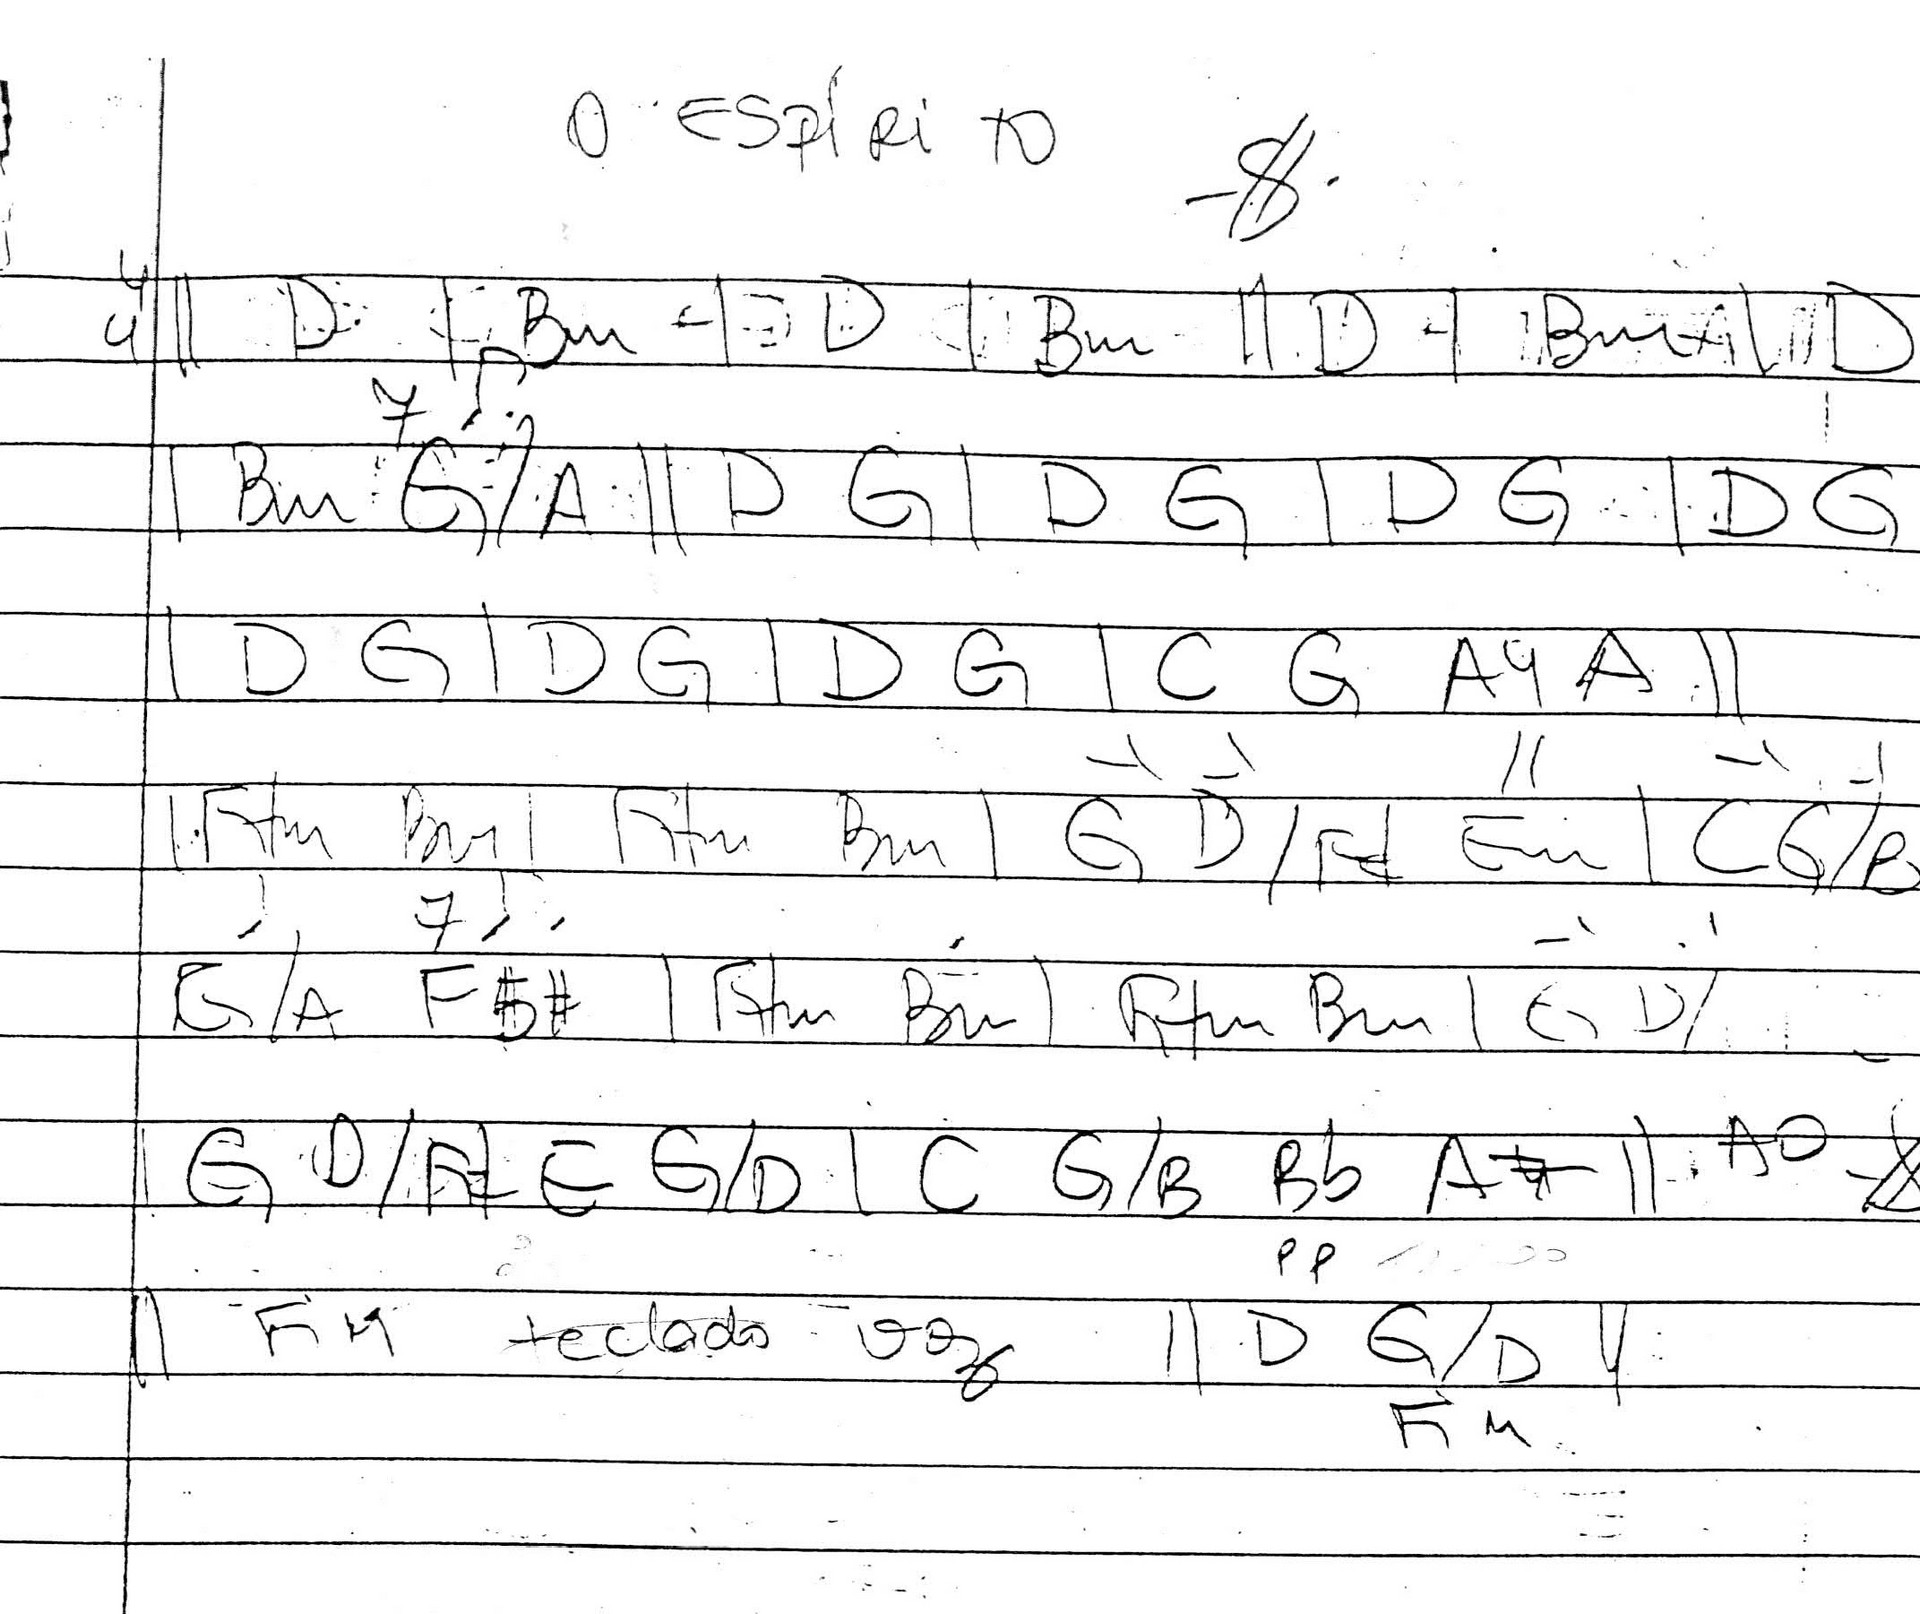 O ESPÍRITO
4/4 || D | Bm | D | Bm || D | Bm A || D
| Bm G/A || D G | D G | D G | D G
| D G | D G | D G | C G A4 A ||
| F#m Bm | F#m Bm | G D/F# Em | C G/B
G/A F# | F#m Bm | F#m Bm | G D/
| G D/F# E G/D | C G/B Bb A || AO
pp
|| FIM teclado voz || D G/D ||
FIM